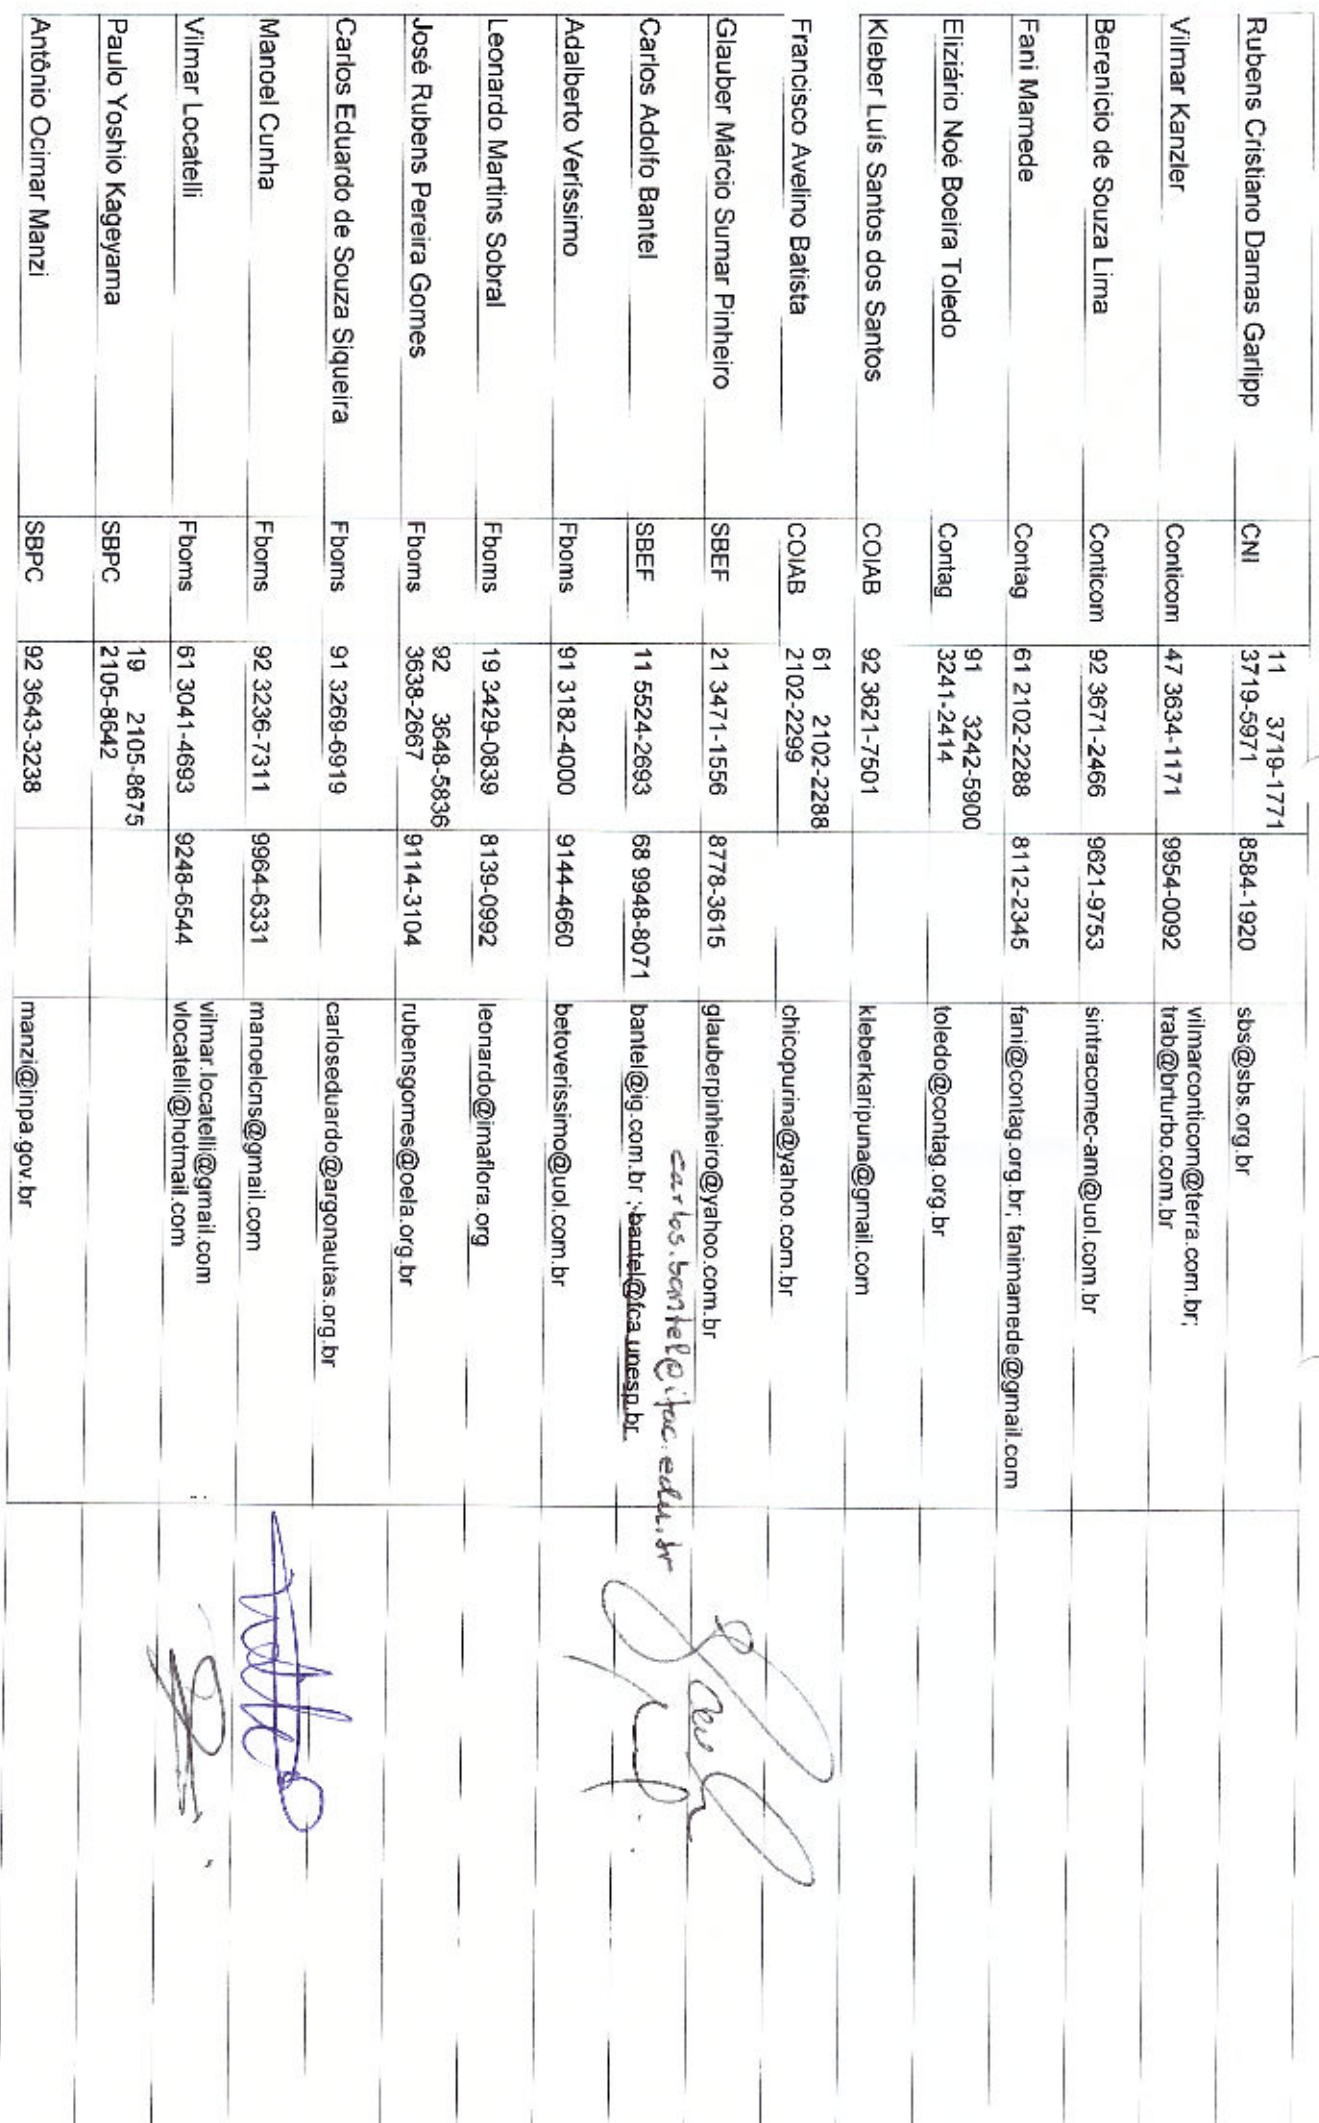 Rubens Cristiano Damas Garlipp CNI 11 3719-1771 8584-1920 sbs@sbs.org.br
3719-5971
Vilmar Kanzler Conticom 47 3634-1171 9954-0092 vilmarconticom@terra.com.br;
trab@brturbo.com.br
Berenicio de Souza Lima Conticom 92 3671-2466 9621-9753 sintracomec-am@uol.com.br
Fani Mamede Contag 61 2102-2288 8112-2345 fani@contag.org.br; fanimamede@gmail.com
Eliziário Noé Boeira Toledo Contag 91 3242-5900 toledo@contag.org.br
3241-2414
Kleber Luís Santos dos Santos COIAB 92 3621-7501 kleberkaripuna@gmail.com
Francisco Avelino Batista COIAB 61 2102-2288 chicopurina@yahoo.com.br
2102-2299
Glauber Márcio Sumar Pinheiro SBEF 21 3471-1556 8778-3615 glauberpinheiro@yahoo.com.br
carlos.bantel@ifac.edu.br
Carlos Adolfo Bantel SBEF 11 5524-2693 68 9948-8071 bantel@ig.com.br ; bantel@fca.unesp.br
Adalberto Veríssimo Fboms 91 3182-4000 9144-4660 betoverissimo@uol.com.br
Leonardo Martins Sobral Fboms 19 3429-0839 8139-0992 leonardo@imaflora.org
José Rubens Pereira Gomes Fboms 92 3648-5836 9114-3104 rubensgomes@oela.org.br
3638-2667
Carlos Eduardo de Souza Siqueira Fboms 91 3269-6919 carloseduardo@argonautas.org.br
Manoel Cunha Fboms 92 3236-7311 9964-6331 manoelcns@gmail.com
Vilmar Locatelli Fboms 61 3041-4693 9248-6544 vilmar.locatelli@gmail.com ;
vlocatelli@hotmail.com
Paulo Yoshio Kageyama SBPC 19 2105-8675
2105-8642
Antônio Ocimar Manzi SBPC 92 3643-3238 manzi@inpa.gov.br